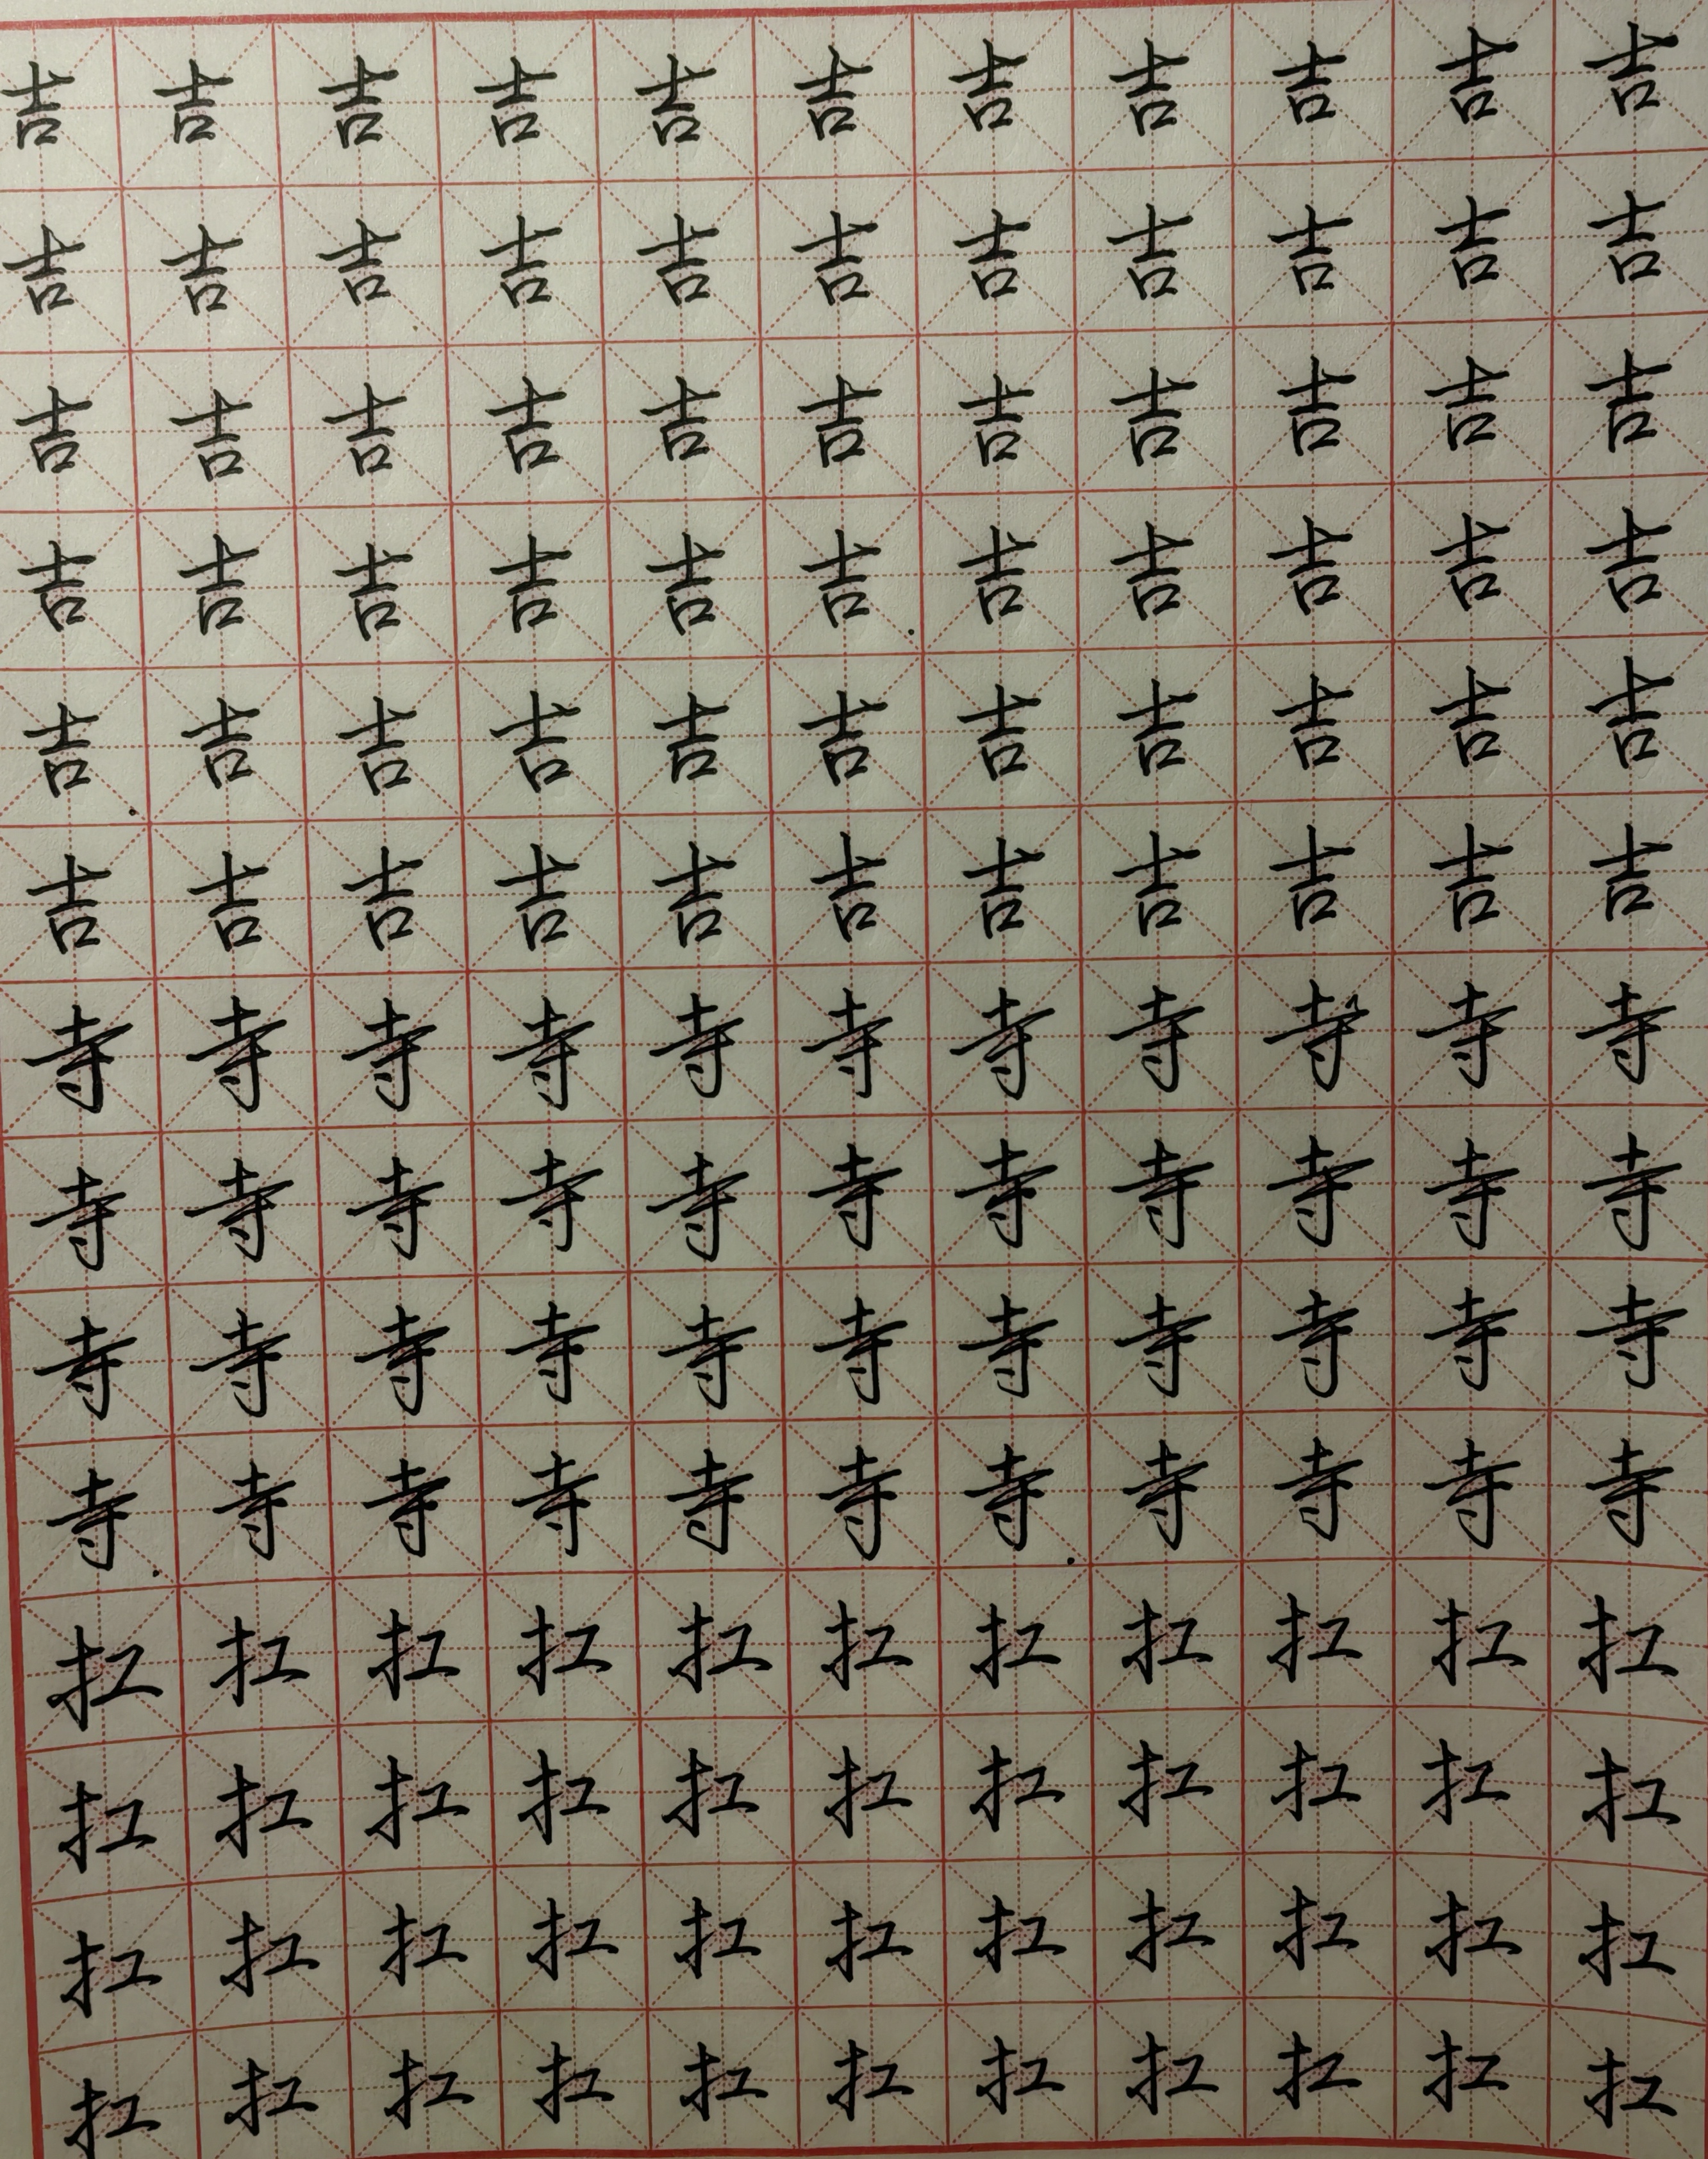 吉吉吉吉吉吉吉吉吉吉吉
吉吉吉吉吉吉吉吉吉吉吉
吉吉吉吉吉吉吉吉吉吉吉
吉吉吉吉吉吉吉吉吉吉吉
吉吉吉吉吉吉吉吉吉吉吉
吉吉吉吉吉吉吉吉吉吉吉
寺寺寺寺寺寺寺寺寺寺寺
寺寺寺寺寺寺寺寺寺寺寺
寺寺寺寺寺寺寺寺寺寺寺
寺寺寺寺寺寺寺寺寺寺寺
扛扛扛扛扛扛扛扛扛扛扛
扛扛扛扛扛扛扛扛扛扛扛
扛扛扛扛扛扛扛扛扛扛扛
扛扛扛扛扛扛扛扛扛扛扛